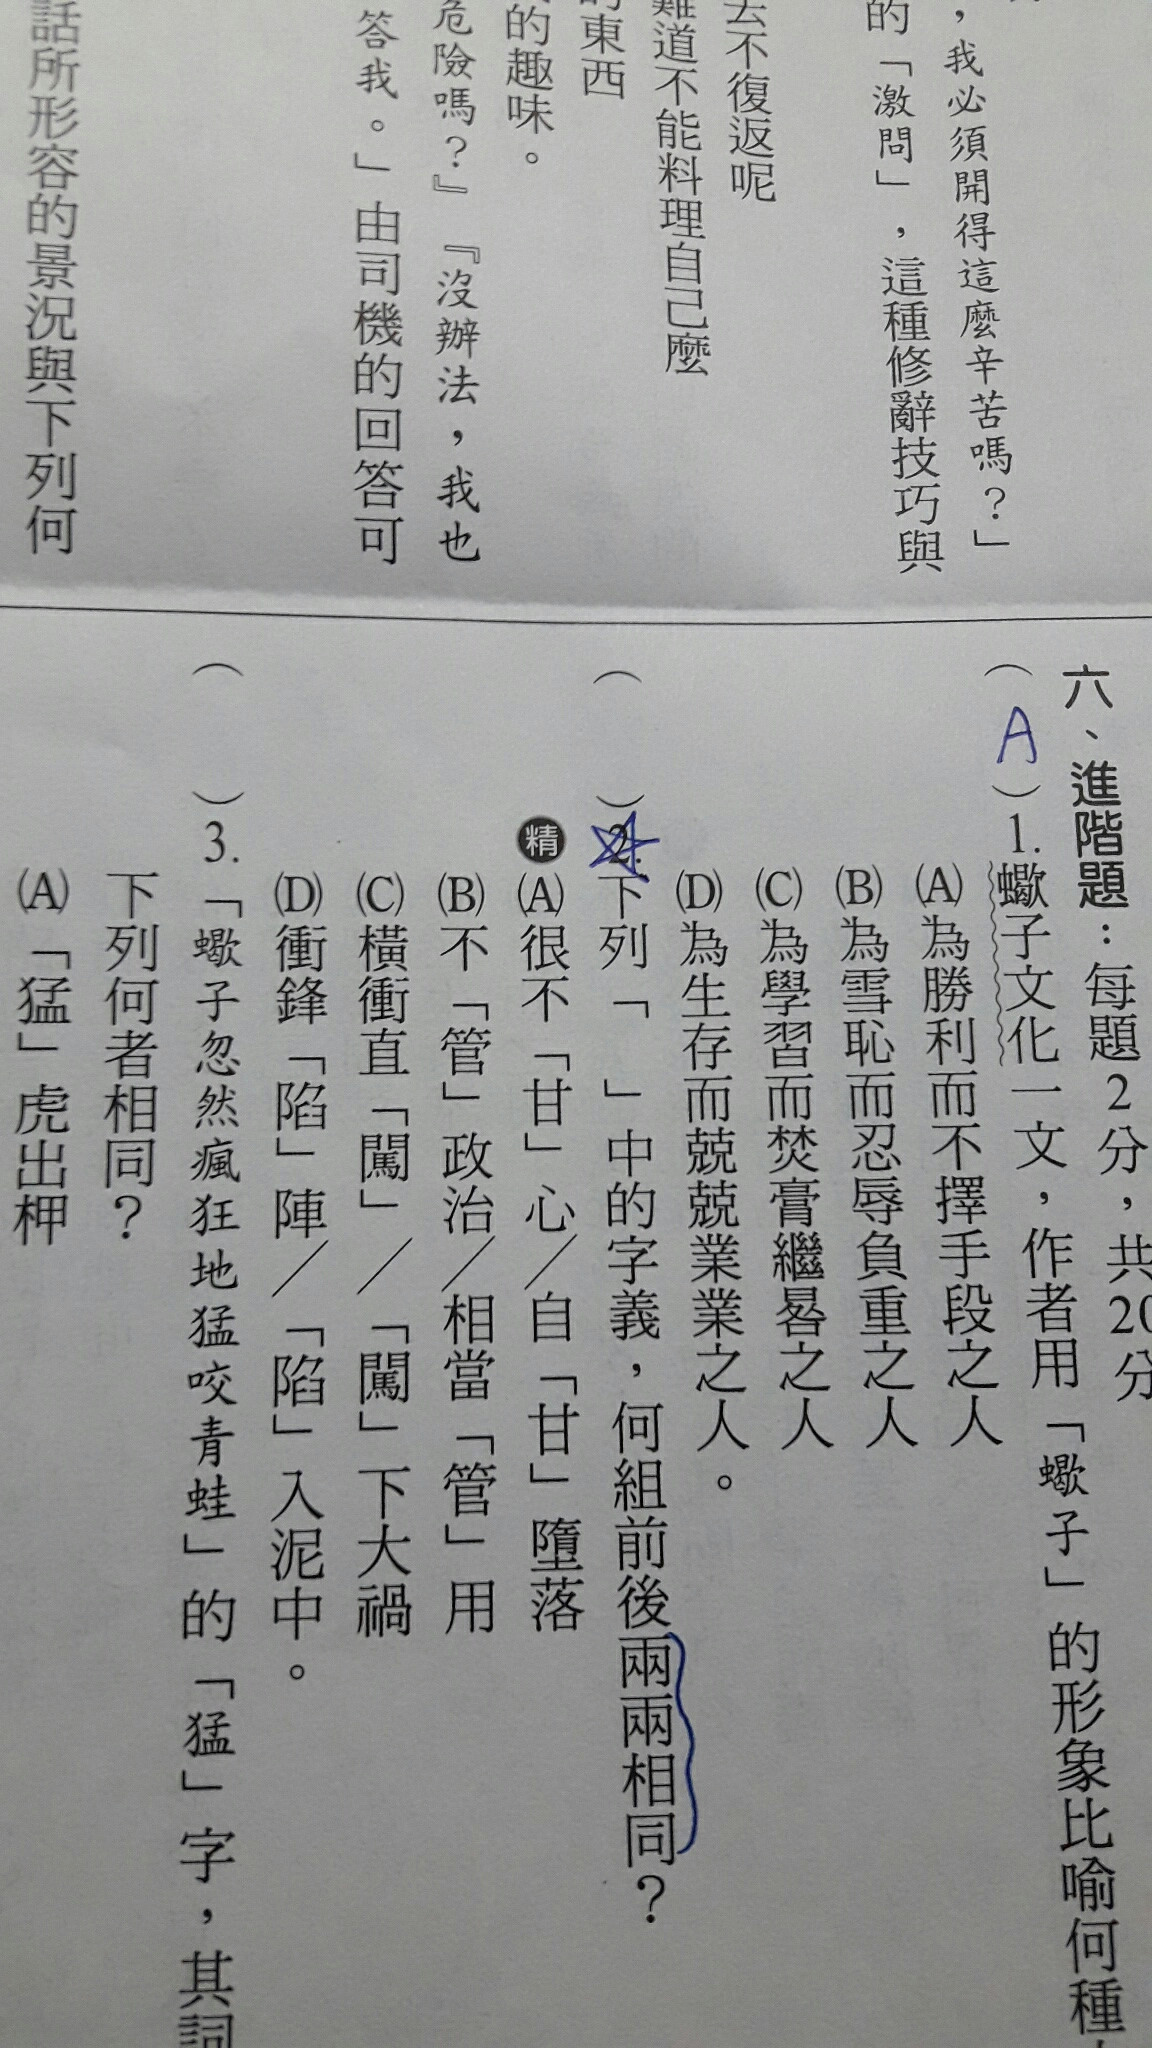 ，我必須開得這麼辛苦嗎？」
的「激問」，這種修辭技巧與
去不復返呢
難道不能料理自己麼
的東西
的趣味。
危險嗎？』『沒辦法，我也
答我。」由司機的回答可
話所形容的景況與下列何
六、進階題：每題2分，共20分
（A）1.蠍子文化一文，作者用「蠍子」的形象比喻何種
(A)為勝利而不擇手段之人
(B)為雪恥而忍辱負重之人
(C)為學習而焚膏繼晷之人
(D)為生存而兢兢業業之人。
（ ）2.下列「 」中的字義，何組前後兩兩相同？
精 (A)很不「甘」心／自「甘」墮落
(B)不「管」政治／相當「管」用
(C)橫衝直「闖」／「闖」下大禍
(D)衝鋒「陷」陣／「陷」入泥中。
（ ）3.「蠍子忽然瘋狂地猛咬青蛙」的「猛」字，其詞
下列何者相同？
(A)「猛」虎出柙